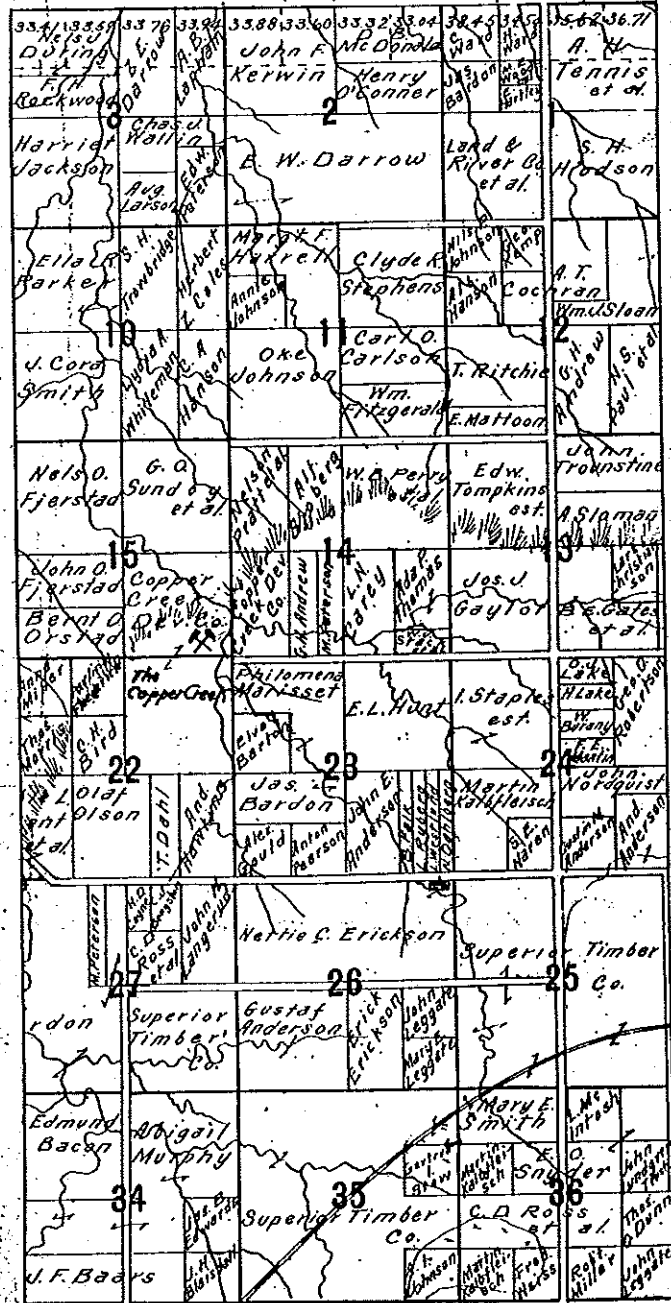 33.41 33.59 33.76 33.94 33.88 33.60 33.32 33.04
36.71
Nels J.
During
F. H.
Rockwood
L. E.
Darrow
A. B.
Lapham
John F.
Kerwin
D. B.
McDonald
Henry
O'Conner
C.
Ward
H.
Ward
Jas.
Bardon
Hartley
A. H.
Tennis
et al.
2
Harriet
Jackson
Chas. J.
Wallin
Aug.
Larson
Edw.
Peterson
E. W. Darrow
Land &
River Co.
et al.
S. H.
Hudson
Ella R.
Parker
S. H.
Trowbridge
Herbert
L. Coles
Margt. F.
Harrell
Annie
Johnson
Clyde R.
Stephens
Nils
Johnson
Geo.
Kemp
Alf.
Hanson
Cochran
A. T.
Wm. J. Sloan
10
11
12
J. Cora
Smith
Lydia A.
Whiteman
C. A.
Hanson
Oke
Johnson
Carl O.
Carlson
Wm.
Fitzgerald
T. Ritchie
E. Mattoon
G. H.
Andrew
N. S.
Paul et al.
Nels O.
Fjerstad
G. O.
Sundby
et al.
Nelson
Pratt et al.
Alf.
W. B. Perry
et al.
Edw.
Tompkins
est.
John
Trounstine
A. Sloman
15
14
13
John O.
Fjerstad
Bernt O.
Orstad
Copper
Creek
Dev. Co.
Copper
Creek Dev.
Co.
G. H. Andrew
M. Peterson
L. N.
Carey
Adap.
Thomas
Jos. J.
Gaylor
Lars
Christianson
B. E. Gates
et al.
Anna
Miller
Thos.
Morris
C. H.
Bird
The
Copper Creek
Philomena
Marisset
Elva
Barton
E. L. Hunt
I. Staples
est.
O. J.
Lake
H Lake
W.
Barany
Geo. O.
Robertson
22
23
24
L.
et al.
Olaf
Olson
T. Dahl
And.
Hawkins
Jas.
Bardon
Alex.
Gould
Anton
Pearson
John E.
Anderson
Martin
Kalbfleisch
S. E.
Haren
John
Nordquist
Gustav W.
Anderson
And.
Anderson
M. Peterson
C. D.
Ross
et al.
John M.
Langerud
Nettie C. Erickson
Superior Timber
Co.
27
26
25
rdon
Superior
Timber
Co.
Gustaf
Anderson
Erick
Erickson
John
Leggate
Mary E.
Leggate
Edmund
Bacon
Abigail
Murphy
Mary E.
Smith
L. Mc
Intosh
Gertrude
I.
Brew
Martin
Kalbfleisch
E. O.
Snyder
34
35
36
Jas. B.
Edwards
Superior Timber
Co.
C. D. Ross
et al.
Thos.
O'Dunn
J. F. Baars
J. H.
Blaisdell
A. t.
Johnson
Martin
Kalbfleisch
Fred
Herss
Robt.
Miller
John
Leggate